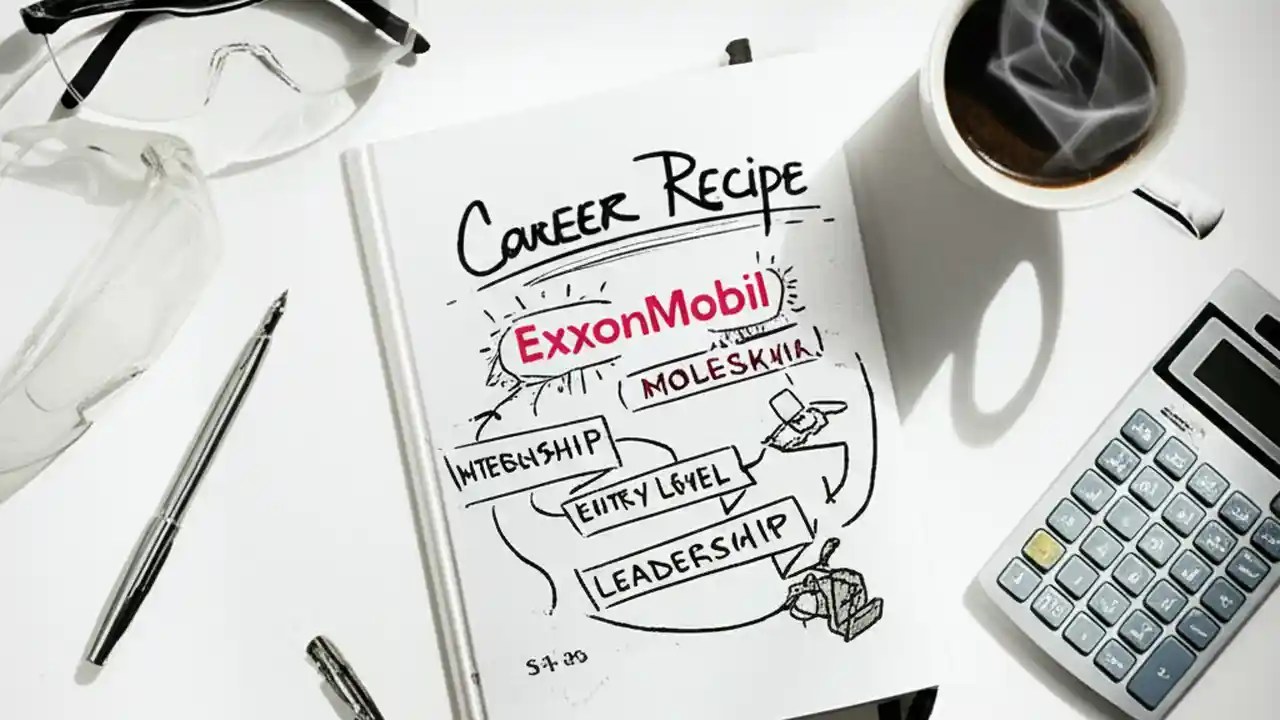 CAREER RECIPE
ExxonMobil
MOLESKIИA
INTEGNSHIP
ENTRY LEVEL
LEADERSHIP